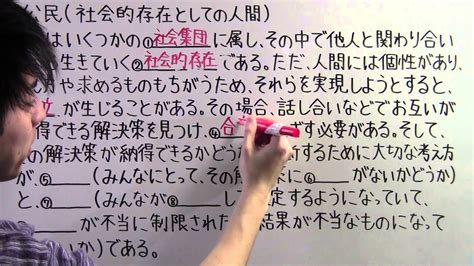 公民(社会的存在としての人間)
はいくつかの①社会集団に属し、その中で他人と関わり合い
生きていく②社会的存在である。ただ、人間には個性があり、
方や求めるものもちがうため、それらを実現しようとすると、
立が生じることがある。その場合、話し合いなどでお互いが
得できる解決策を見つけ、④合 ざす必要がある。そして、
の解決策が納得できるかどう するために大切な考え方
が、⑤ (みんなにとって、その解 に⑥ がないかどうか)
と、⑦ (みんなが⑧ し 定するようになっていて、
が不当に制限された 結果が不当なものになって
か)である。